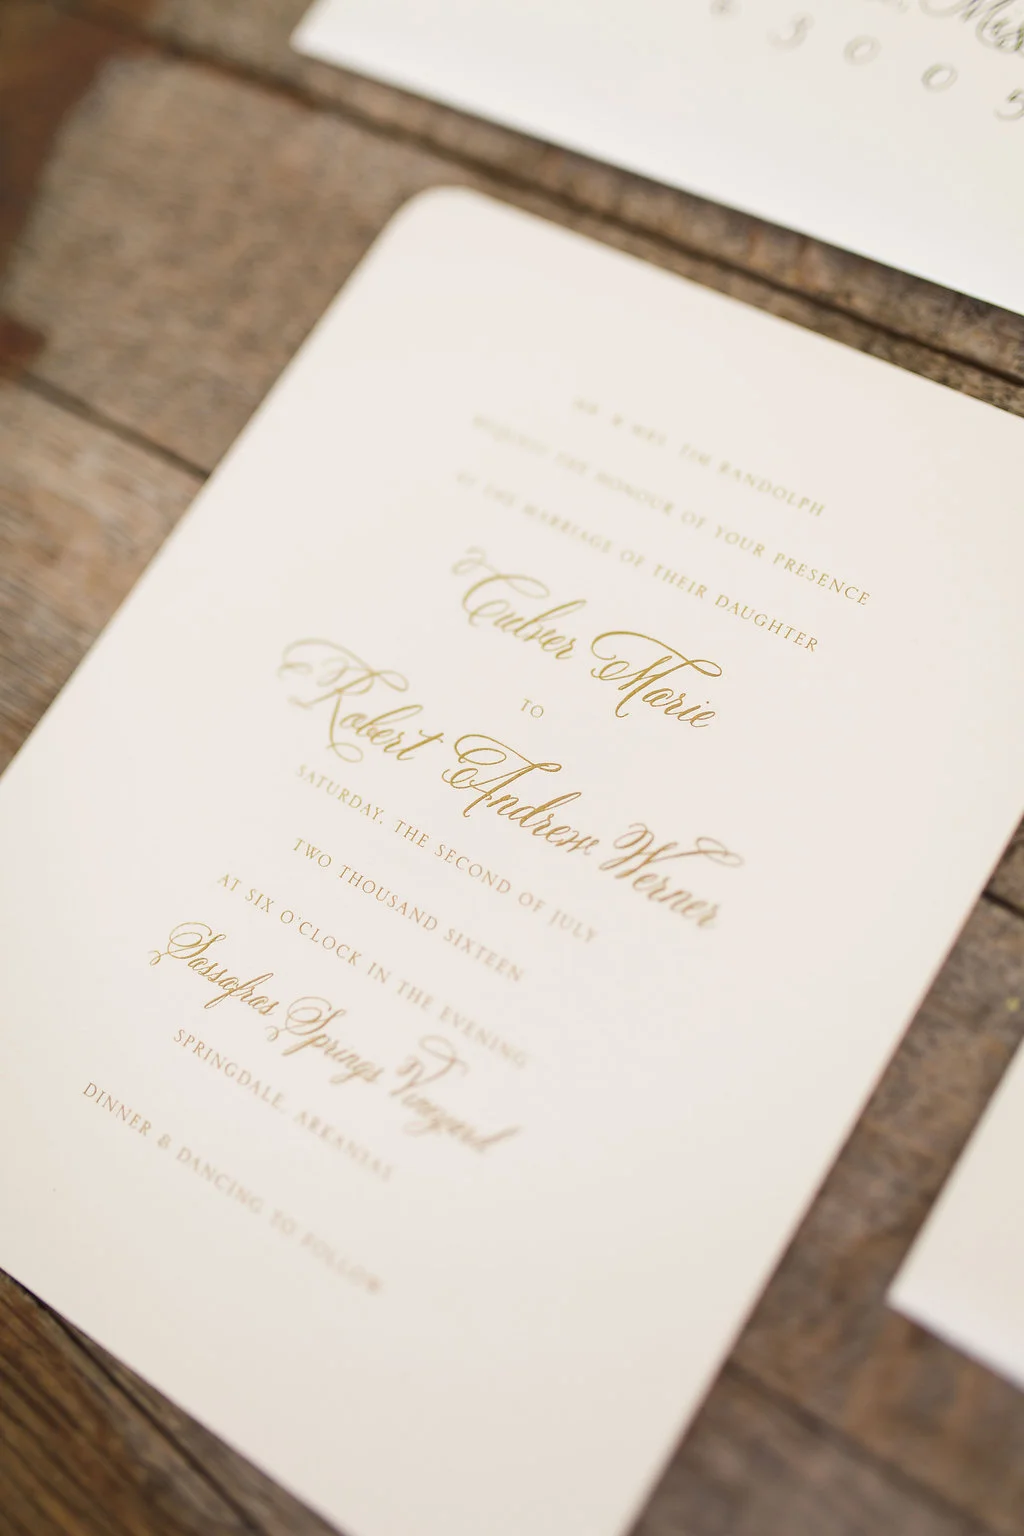 Mis
3 0 0 5
MR. & MRS. TIM RANDOLPH
REQUEST THE HONOUR OF YOUR PRESENCE
AT THE MARRIAGE OF THEIR DAUGHTER
Culver Marie
TO
Robert Andrew Werner
SATURDAY, THE SECOND OF JULY
TWO THOUSAND SIXTEEN
AT SIX O'CLOCK IN THE EVENING
Sassafras Springs Vineyard
SPRINGDALE, ARKANSAS
DINNER & DANCING TO FOLLOW